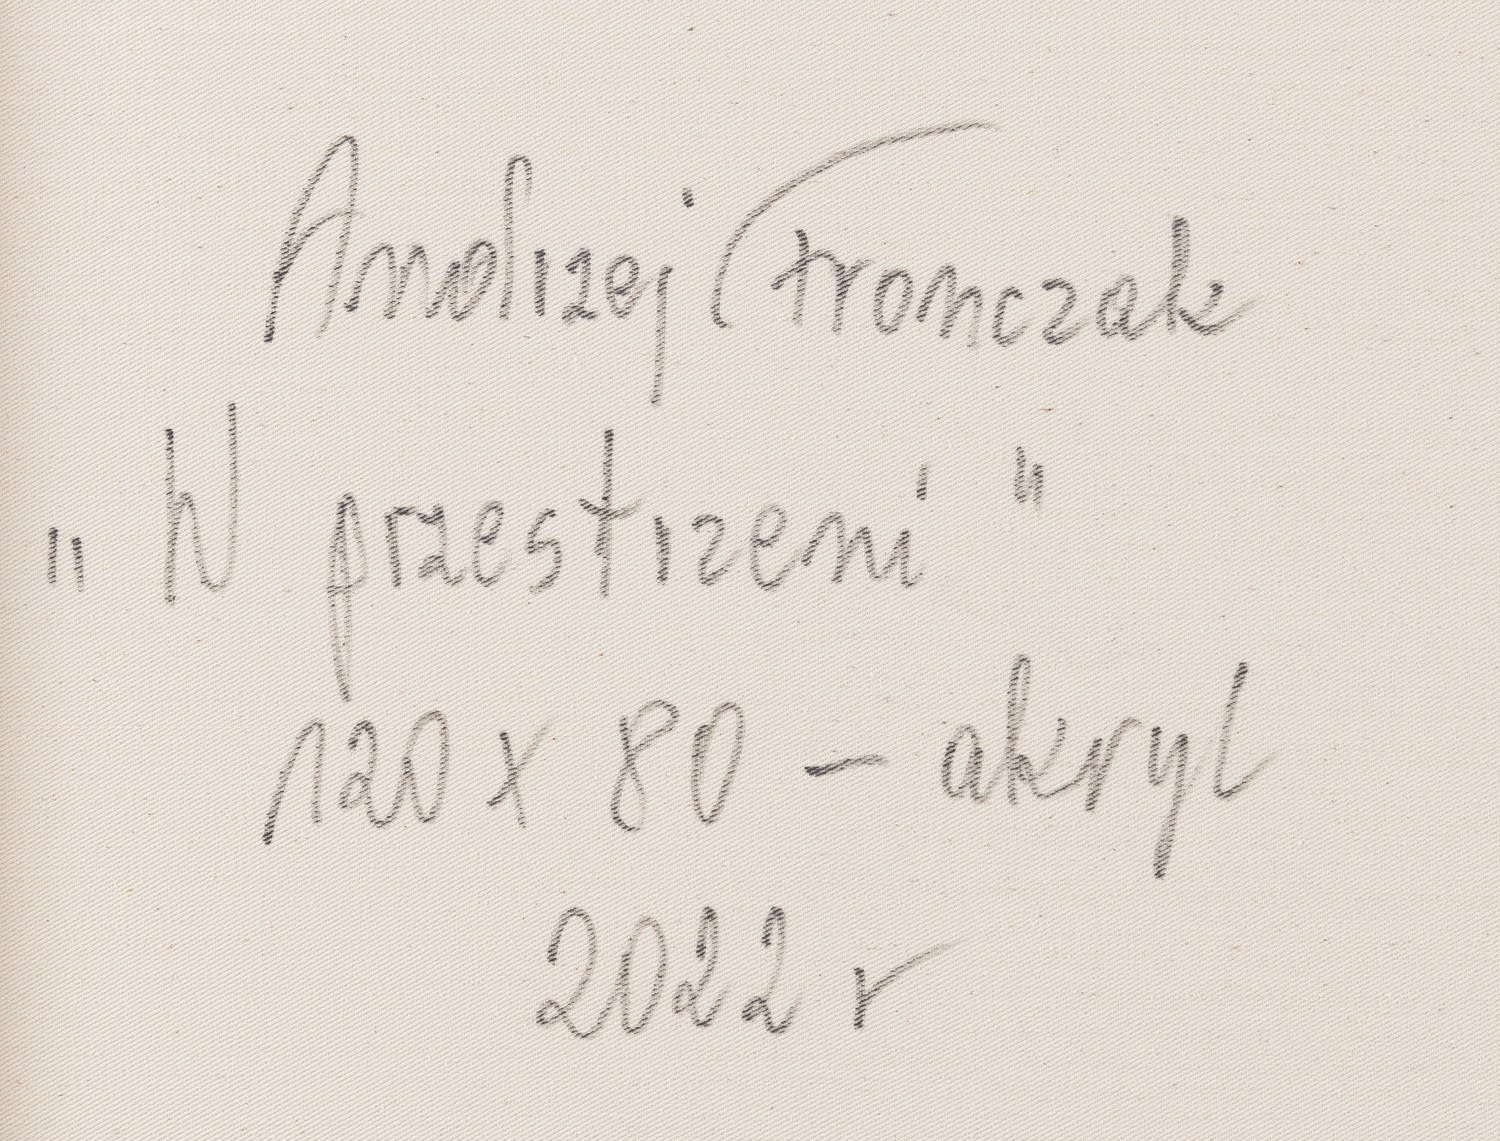 Andrzej Fronczak
„ W przestrzeni "
120 x 80 – akryl
2022 r